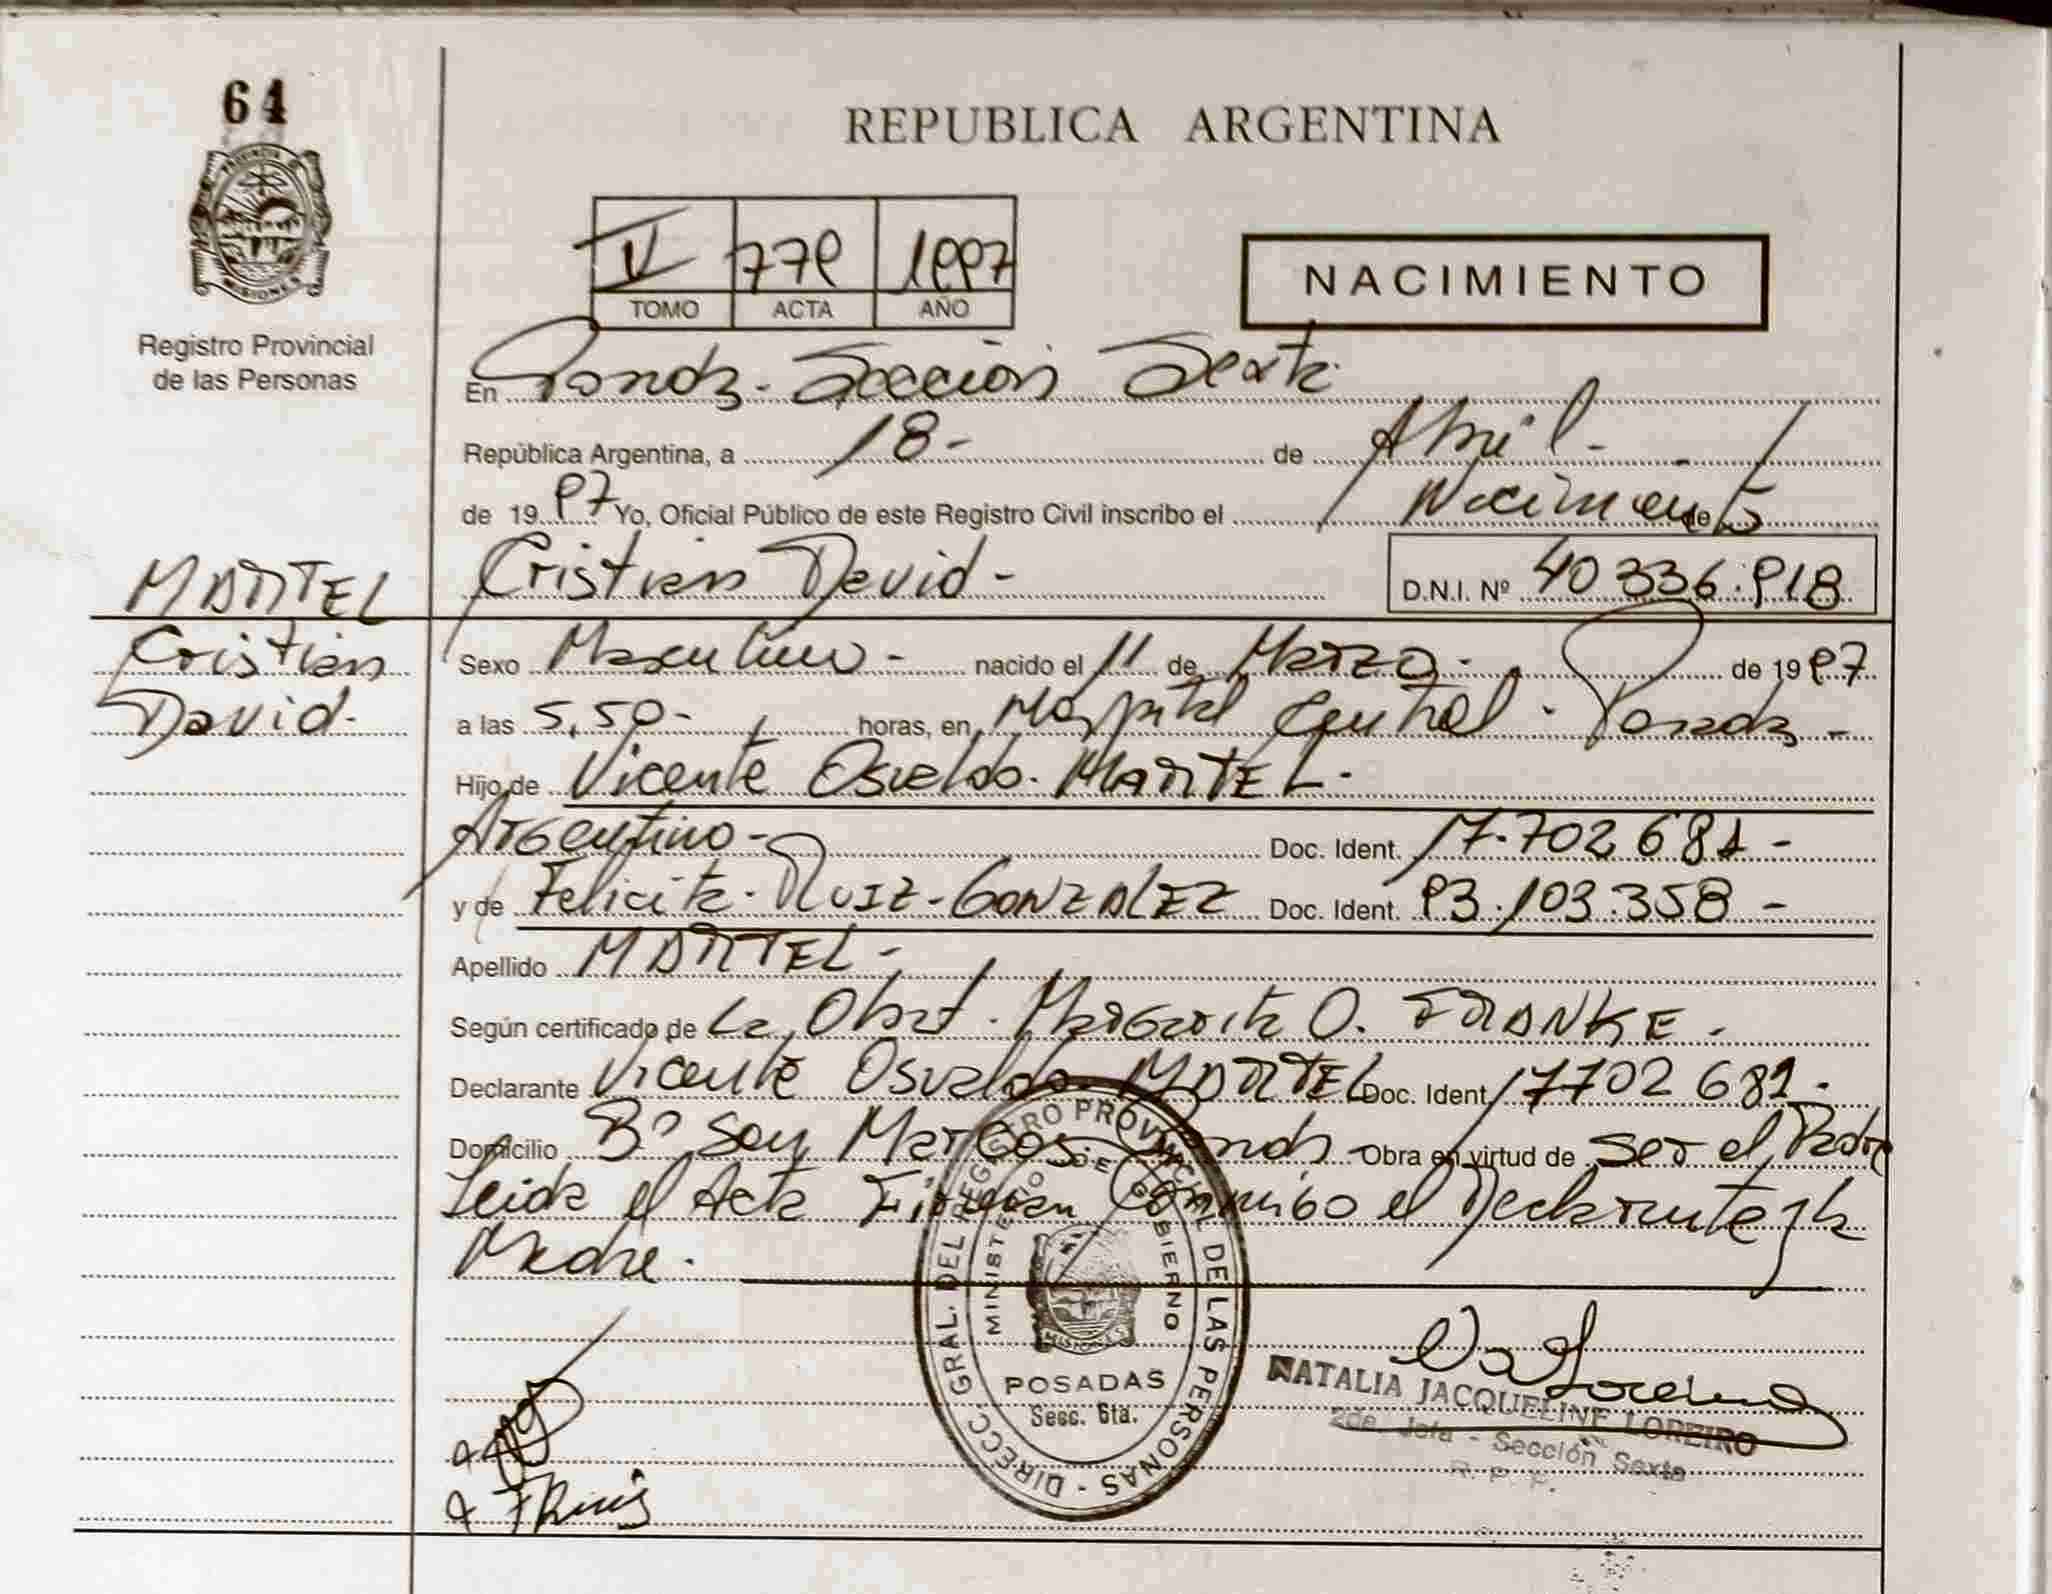 64
PROVINCIA DE
MISIONES
Registro Provincial
de las Personas
REPUBLICA ARGENTINA
V 779 1997
TOMO ACTA AÑO
NACIMIENTO
En Posadas - Sección Sexta
República Argentina, a 18 - de Abril -
de 1997 Yo, Oficial Público de este Registro Civil inscribo el Nacimiento de
Cristian David - D.N.I. Nº 40 336.918
MARTEL
Cristian
David -
Sexo Masculino - nacido el 11 de Marzo - de 1997
a las 5,50 - horas, en Hospital Central - Posadas -
Hijo de Vicente Osvaldo - MARTEL -
Argentino - Doc. Ident. 17.702 681 -
y de Felicita - RUIZ - GONZALEZ Doc. Ident. 93.103.358 -
Apellido MARTEL -
Según certificado de La Obst. Margarita O. FRANKE .
Declarante Vicente Osvaldo MARTEL Doc. Ident. 17702 681 -
Domicilio Bº San Marcos - Posadas - Obra en virtud de ser el Padre
Leida el Acta Firman Conmigo el Declarante y la
Madre .
DIRECC. GRAL. DEL REGISTRO PROVINCIAL DE LAS PERSONAS -
MINISTERIO DE GOBIERNO
MISIONES
POSADAS
Secc. 6ta.
NATALIA JACQUELINE LOREIRO
2da. Jefa - Sección Sexta
R. P. P.
F Ruis